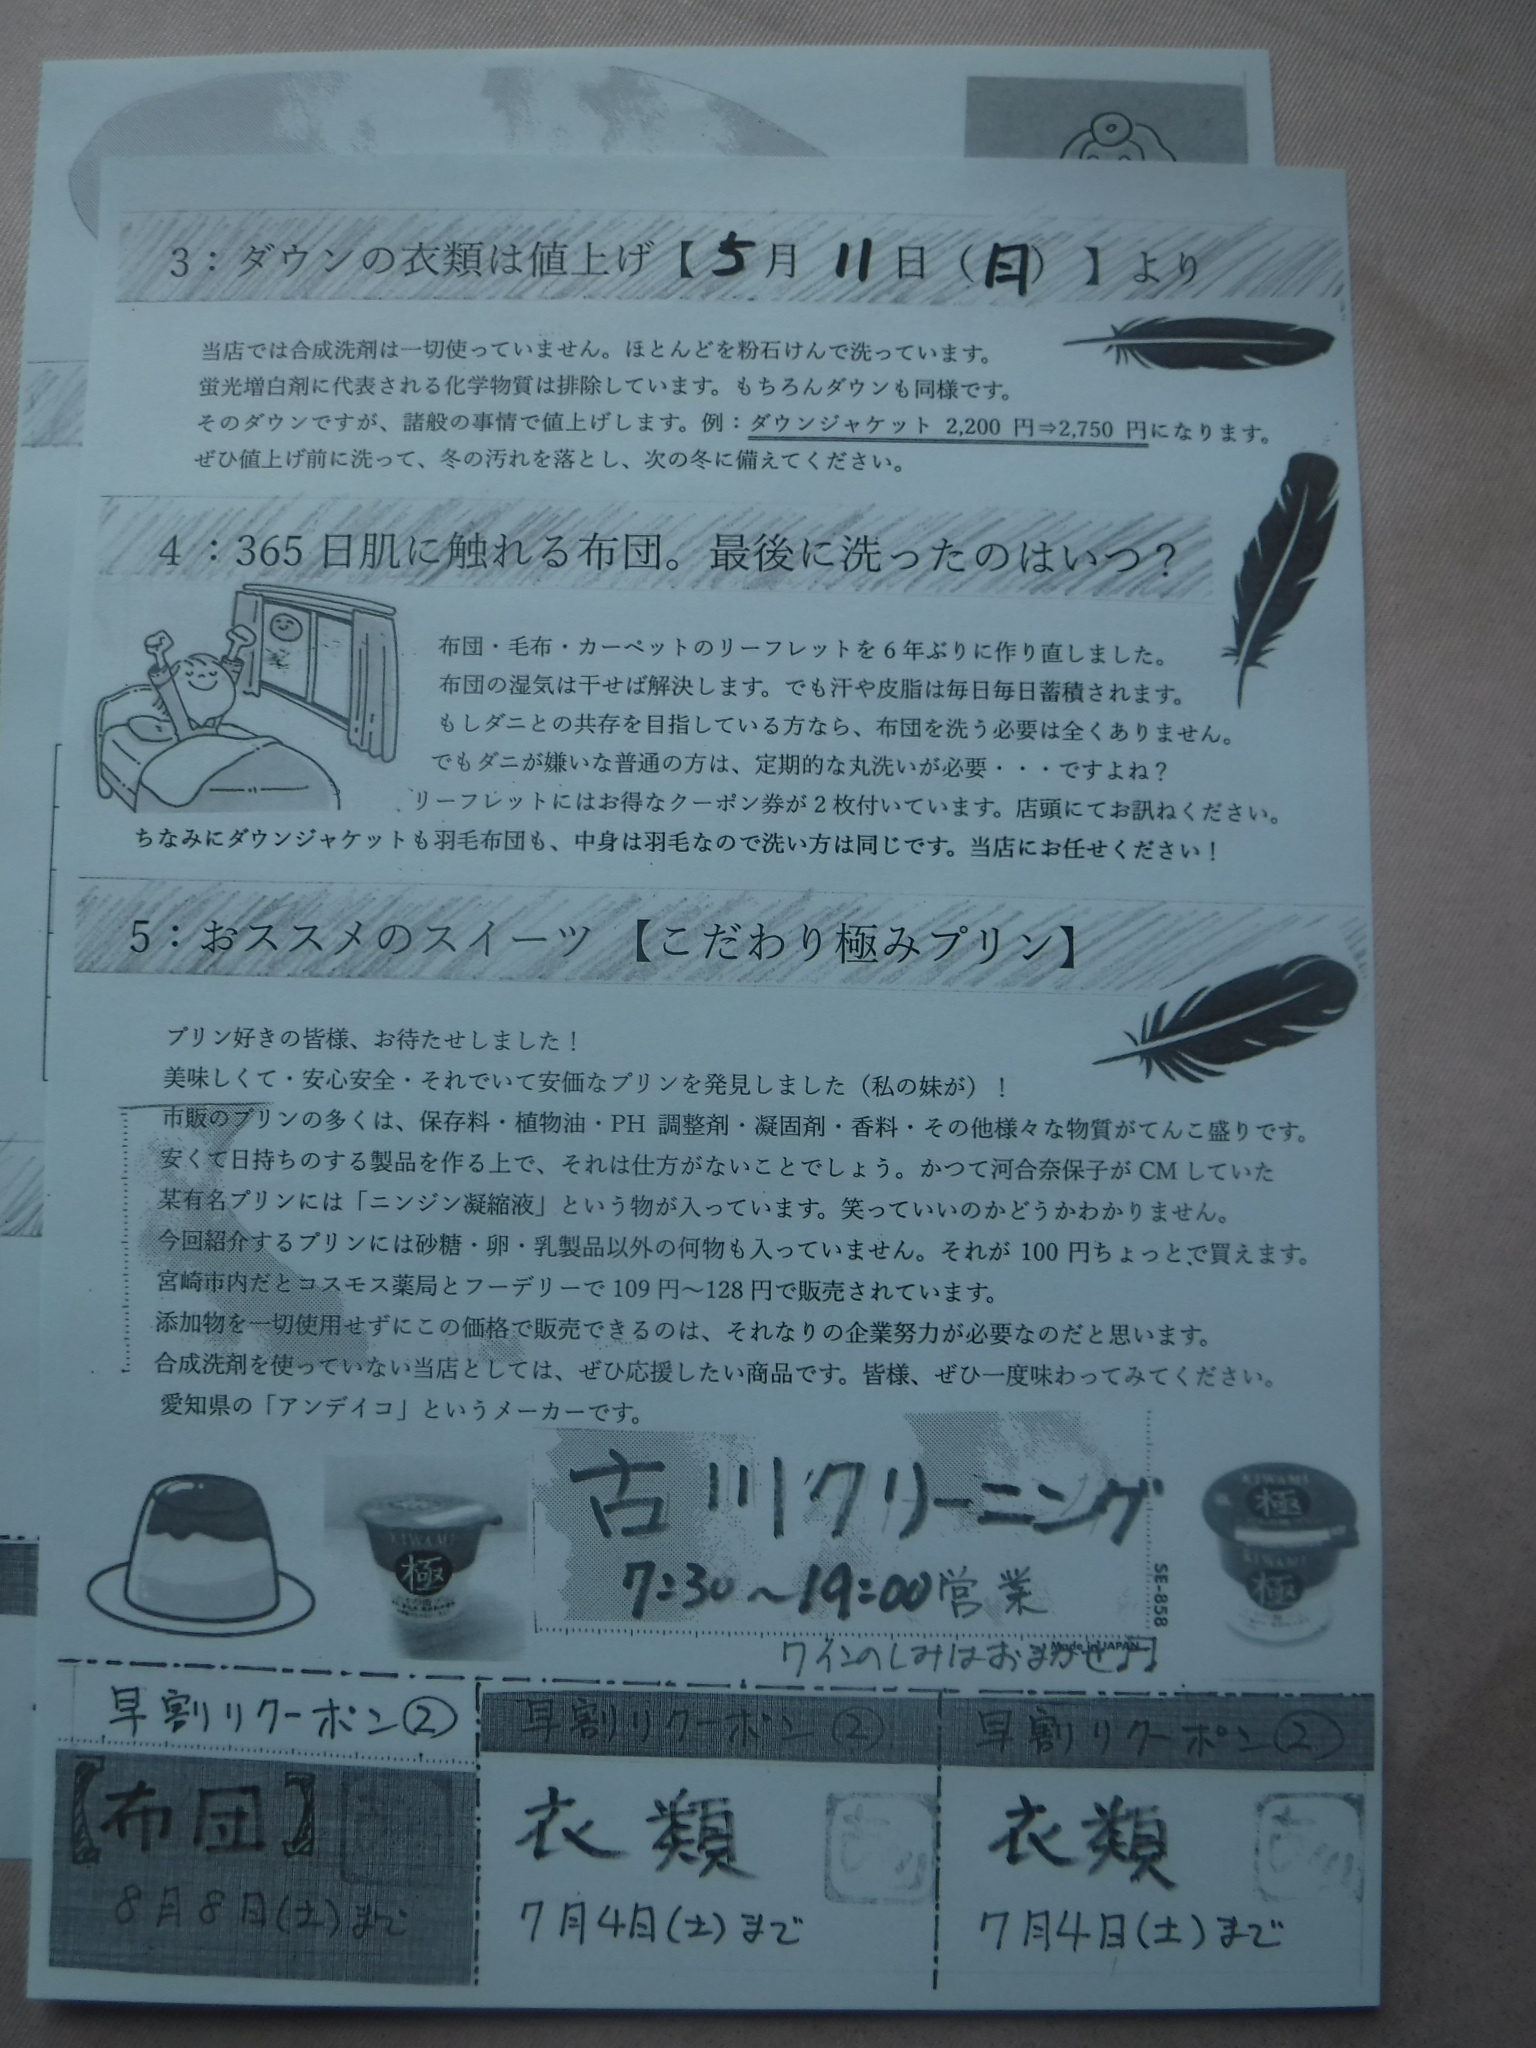 3：ダウンの衣類は値上げ【5月11日（日）】より
当店では合成洗剤は一切使っていません。ほとんどを粉石けんで洗っています。
蛍光増白剤に代表される化学物質は排除しています。もちろんダウンも同様です。
そのダウンですが、諸般の事情で値上げします。例：ダウンジャケット 2,200 円⇒2,750 円になります。
ぜひ値上げ前に洗って、冬の汚れを落とし、次の冬に備えてください。
4：365日肌に触れる布団。最後に洗ったのはいつ？
布団・毛布・カーペットのリーフレットを6年ぶりに作り直しました。
布団の湿気は干せば解決します。でも汗や皮脂は毎日毎日蓄積されます。
もしダニとの共存を目指している方なら、布団を洗う必要は全くありません。
でもダニが嫌いな普通の方は、定期的な丸洗いが必要・・・ですよね？
リーフレットにはお得なクーポン券が2枚付いています。店頭にてお訊ねください。
ちなみにダウンジャケットも羽毛布団も、中身は羽毛なので洗い方は同じです。当店にお任せください！
5：おススメのスイーツ 【こだわり極みプリン】
プリン好きの皆様、お待たせしました！
美味しくて・安心安全・それでいて安価なプリンを発見しました（私の妹が）！
市販のプリンの多くは、保存料・植物油・PH 調整剤・凝固剤・香料・その他様々な物質がてんこ盛りです。
安くて日持ちのする製品を作る上で、それは仕方がないことでしょう。かつて河合奈保子がCMしていた
某有名プリンには「ニンジン凝縮液」という物が入っています。笑っていいのかどうかわかりません。
今回紹介するプリンには砂糖・卵・乳製品以外の何物も入っていません。それが 100 円ちょっとで買えます。
宮崎市内だとコスモス薬局とフーデリーで109円～128円で販売されています。
添加物を一切使用せずにこの価格で販売できるのは、それなりの企業努力が必要なのだと思います。
合成洗剤を使っていない当店としては、ぜひ応援したい商品です。皆様、ぜひ一度味わってみてください。
愛知県の「アンデイコ」というメーカーです。
KIWAMI
極
古川クリーニング
7:30～19:00営業
SE-858
Made in JAPAN
ワインのしみはおまかせ♪♪
KIWAMI
極
KIWAMI
極
早割りクーポン②
【布団】
8月8日(土)まで
早割りクーポン②
衣類
7月4日(土)まで
早割りクーポン②
衣類
7月4日(土)まで